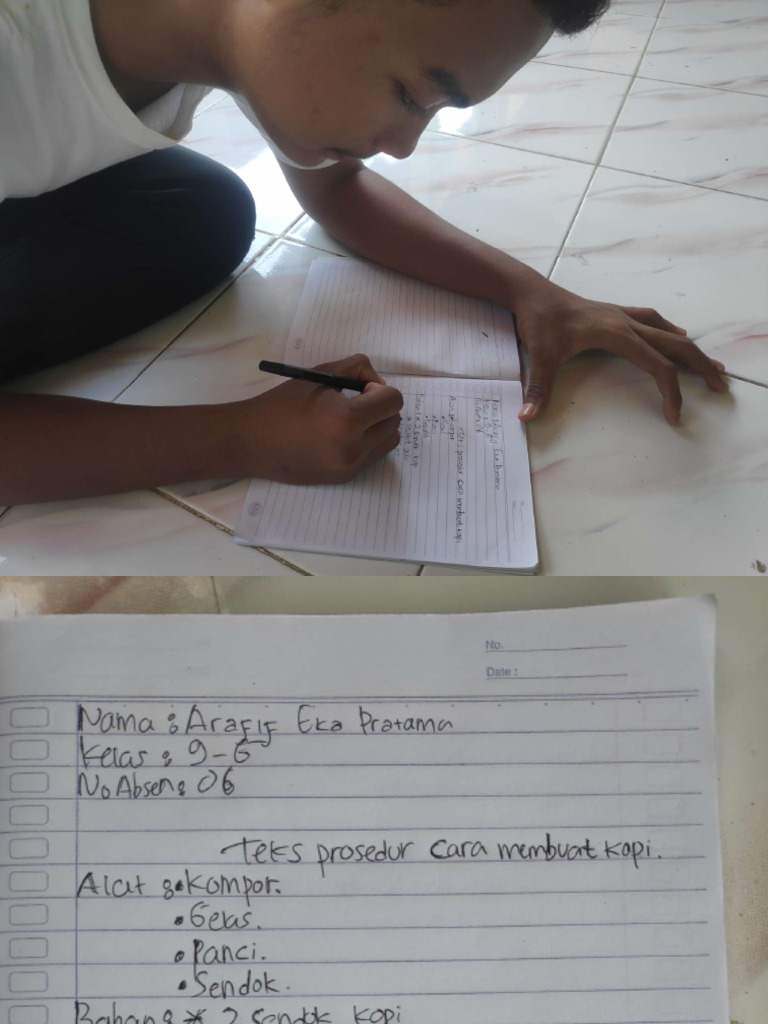 No.
Date :
Nama : Arafif Eka Pratama
Kelas : 9-G
No Absen : 06
teks prosedur cara membuat kopi.
Alat : • kompor.
• Gelas.
• Panci.
• Sendok.
Bahan : * 2 sendok kopi